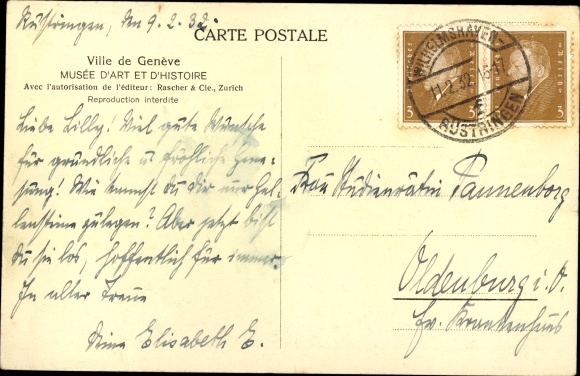 Rüstringen, den 9.2.32.
CARTE POSTALE
Ville de Genève
MUSÉE D'ART ET D'HISTOIRE
Avec l'autorisation de l'éditeur: Rascher & Cie., Zurich
Reproduction interdite
Liebe Lilly! Viel gute Wünsche
für gründliche u. fröhliche Gene-
sung! Wie kannst du dir nur Gal-
lensteine zulegen? Aber jetzt bist
du sie los, hoffentlich für immer.
In alter Treue
Deine Elisabeth E.
WILHELMSHAVEN-
11.2.32
RÜSTRINGEN
3
3
Frau Studienrätin Tannenborg
Oldenburg i. O.
Ev. Krankenhaus